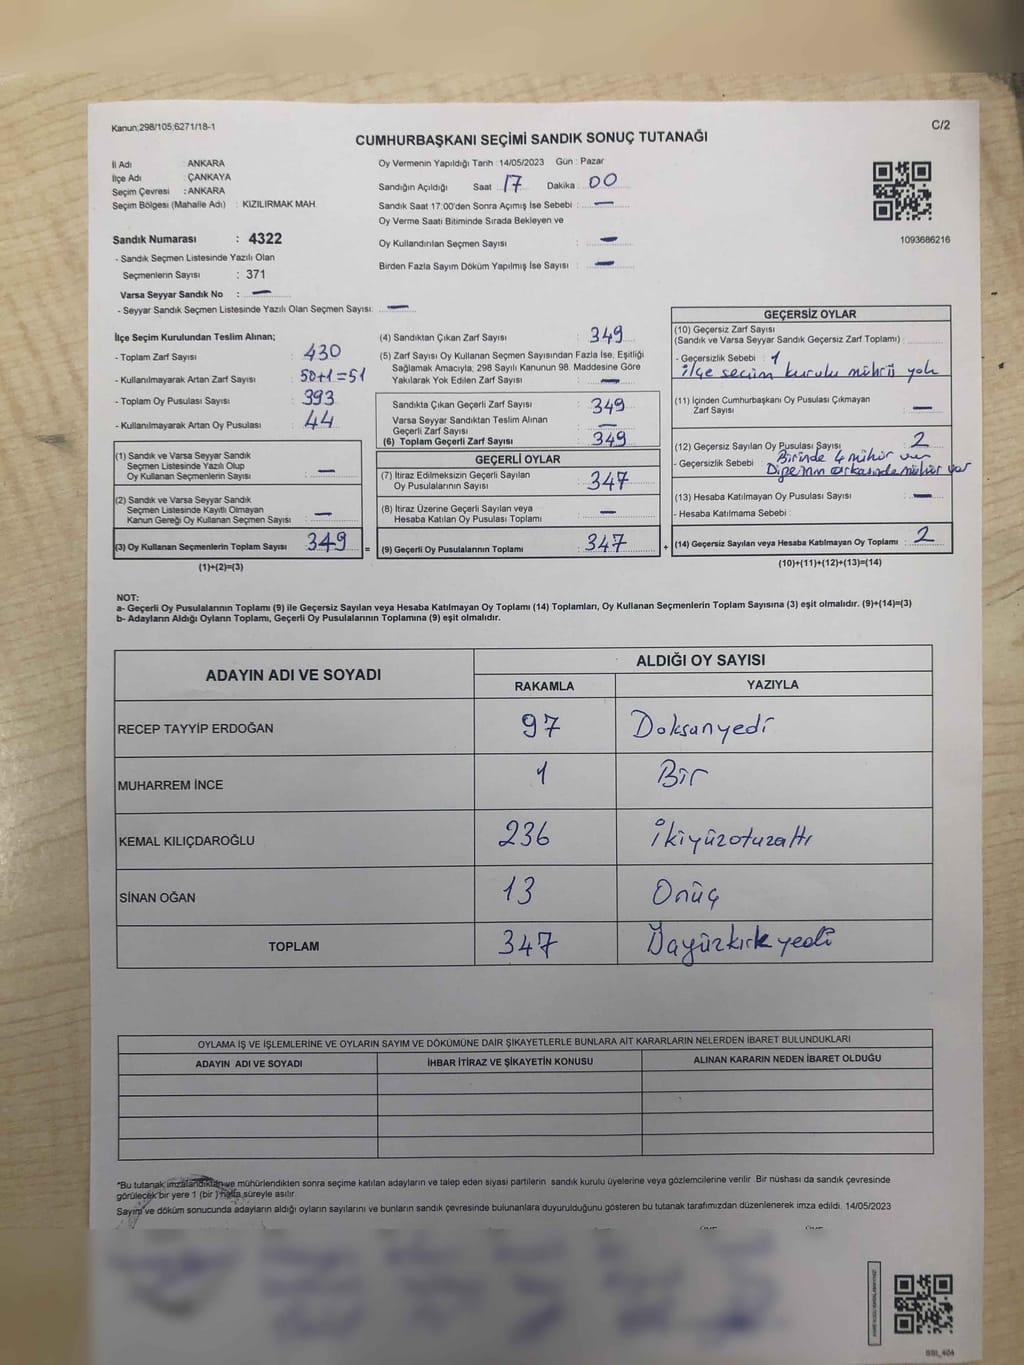 Kanun;298/105;6271/18-1
C/2
CUMHURBAŞKANI SEÇİMİ SANDIK SONUÇ TUTANAĞI
İl Adı : ANKARA
İlçe Adı : ÇANKAYA
Seçim Çevresi : ANKARA
Seçim Bölgesi (Mahalle Adı) : KIZILIRMAK MAH.
Oy Vermenin Yapıldığı Tarih : 14/05/2023 Gün : Pazar
Sandığın Açıldığı Saat 17 Dakika : 00
Sandık Saat 17:00'den Sonra Açımış İse Sebebi : —
Oy Verme Saati Bitiminde Sırada Bekleyen ve
Oy Kullandırılan Seçmen Sayısı : —
Birden Fazla Sayım Döküm Yapılmış İse Sayısı : —
1093686216
Sandık Numarası : 4322
- Sandık Seçmen Listesinde Yazılı Olan
Seçmenlerin Sayısı : 371
Varsa Seyyar Sandık No : —
- Seyyar Sandık Seçmen Listesinde Yazılı Olan Seçmen Sayısı: —
İlçe Seçim Kurulundan Teslim Alınan;
- Toplam Zarf Sayısı : 430
- Kullanılmayarak Artan Zarf Sayısı : 50+1=51
- Toplam Oy Pusulası Sayısı : 393
- Kullanılmayarak Artan Oy Pusulası : 44
(1) Sandık ve Varsa Seyyar Sandık
Seçmen Listesinde Yazılı Olup
Oy Kullanan Seçmenlerin Sayısı : —
(2) Sandık ve Varsa Seyyar Sandık
Seçmen Listesinde Kayıtlı Olmayan
Kanun Gereği Oy Kullanan Seçmen Sayısı : —
(3) Oy Kullanan Seçmenlerin Toplam Sayısı : 349 =
(1)+(2)=(3)
(4) Sandıktan Çıkan Zarf Sayısı : 349
(5) Zarf Sayısı Oy Kullanan Seçmen Sayısından Fazla İse, Eşitliği
Sağlamak Amacıyla; 298 Sayılı Kanunun 98. Maddesine Göre
Yakılarak Yok Edilen Zarf Sayısı : —
Sandıkta Çıkan Geçerli Zarf Sayısı : 349
Varsa Seyyar Sandıktan Teslim Alınan
Geçerli Zarf Sayısı : —
(6) Toplam Geçerli Zarf Sayısı : 349
GEÇERLİ OYLAR
(7) İtiraz Edilmeksizin Geçerli Sayılan
Oy Pusulalarının Sayısı : 347
(8) İtiraz Üzerine Geçerli Sayılan veya
Hesaba Katılan Oy Pusulası Toplamı : —
(9) Geçerli Oy Pusulalarının Toplamı : 347 +
GEÇERSİZ OYLAR
(10) Geçersiz Zarf Sayısı
(Sandık ve Varsa Seyyar Sandık Geçersiz Zarf Toplamı) :
- Geçersizlik Sebebi : 1
ilçe seçim kurulu mührü yok
(11) İçinden Cumhurbaşkanı Oy Pusulası Çıkmayan
Zarf Sayısı : —
(12) Geçersiz Sayılan Oy Pusulası Sayısı : 2
- Geçersizlik Sebebi : Birinde 4 mühür var
Diğerinin arkasında mühür var
(13) Hesaba Katılmayan Oy Pusulası Sayısı : —
- Hesaba Katılmama Sebebi :
(14) Geçersiz Sayılan veya Hesaba Katılmayan Oy Toplamı : 2
(10)+(11)+(12)+(13)=(14)
NOT:
a- Geçerli Oy Pusulalarının Toplamı (9) ile Geçersiz Sayılan veya Hesaba Katılmayan Oy Toplamı (14) Toplamları, Oy Kullanan Seçmenlerin Toplam Sayısına (3) eşit olmalıdır. (9)+(14)=(3)
b- Adayların Aldığı Oyların Toplamı, Geçerli Oy Pusulalarının Toplamına (9) eşit olmalıdır.
ADAYIN ADI VE SOYADI
ALDIĞI OY SAYISI
RAKAMLA YAZIYLA
RECEP TAYYİP ERDOĞAN 97 Doksanyedi
MUHARREM İNCE 1 Bir
KEMAL KILIÇDAROĞLU 236 İkiyüzotuzaltı
SİNAN OĞAN 13 Onüç
TOPLAM 347
OYLAMA İŞ VE İŞLEMLERİNE VE OYLARIN SAYIM VE DÖKÜMÜNE DAİR ŞİKAYETLERLE BUNLARA AİT KARARLARIN NELERDEN İBARET BULUNDUKLARI
ADAYIN ADI VE SOYADI İHBAR İTİRAZ VE ŞİKAYETİN KONUSU ALINAN KARARIN NEDEN İBARET OLDUĞU
*Bu tutanak imzalandıktan ve mühürlendikten sonra seçime katılan adayların ve talep eden siyasi partilerin sandık kurulu üyelerine veya gözlemcilerine verilir. Bir nüshası da sandık çevresinde
görülecek bir yere 1 (bir ) hafta süreyle asılır.
Sayım ve döküm sonucunda adayların aldığı oyların sayılarını ve bunların sandık çevresinde bulunanlara duyurulduğunu gösteren bu tutanak tarafımızdan düzenlenerek imza edildi. 14/05/2023